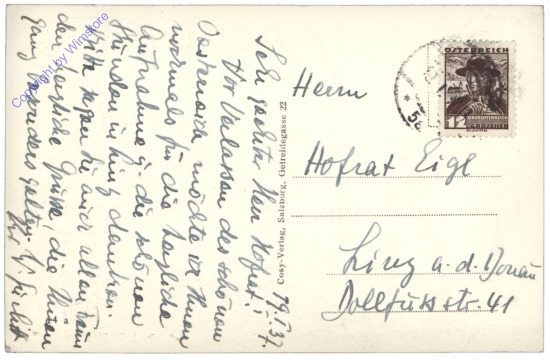 Sehr geehrter Herr Hofrat!
Vor Verlassen des schönen
Oesterreich möchte ich Ihnen
nochmals für die herzliche
Aufnahme u. die schönen
Stunden in Linz danken.
Bitte sagen Sie auch allen
den herzliche Grüsse, die Ihnen
ganz besonders gelten.
Ihr
19. 37.
Cosy-Verlag, Salzburg, Getreidegasse 22
Herrn
Hofrat Eigl
Linz a. d. Donau
Dollfuss str. 41
ÖSTERREICH
12
GROSCHEN
Copyright by Wimstore